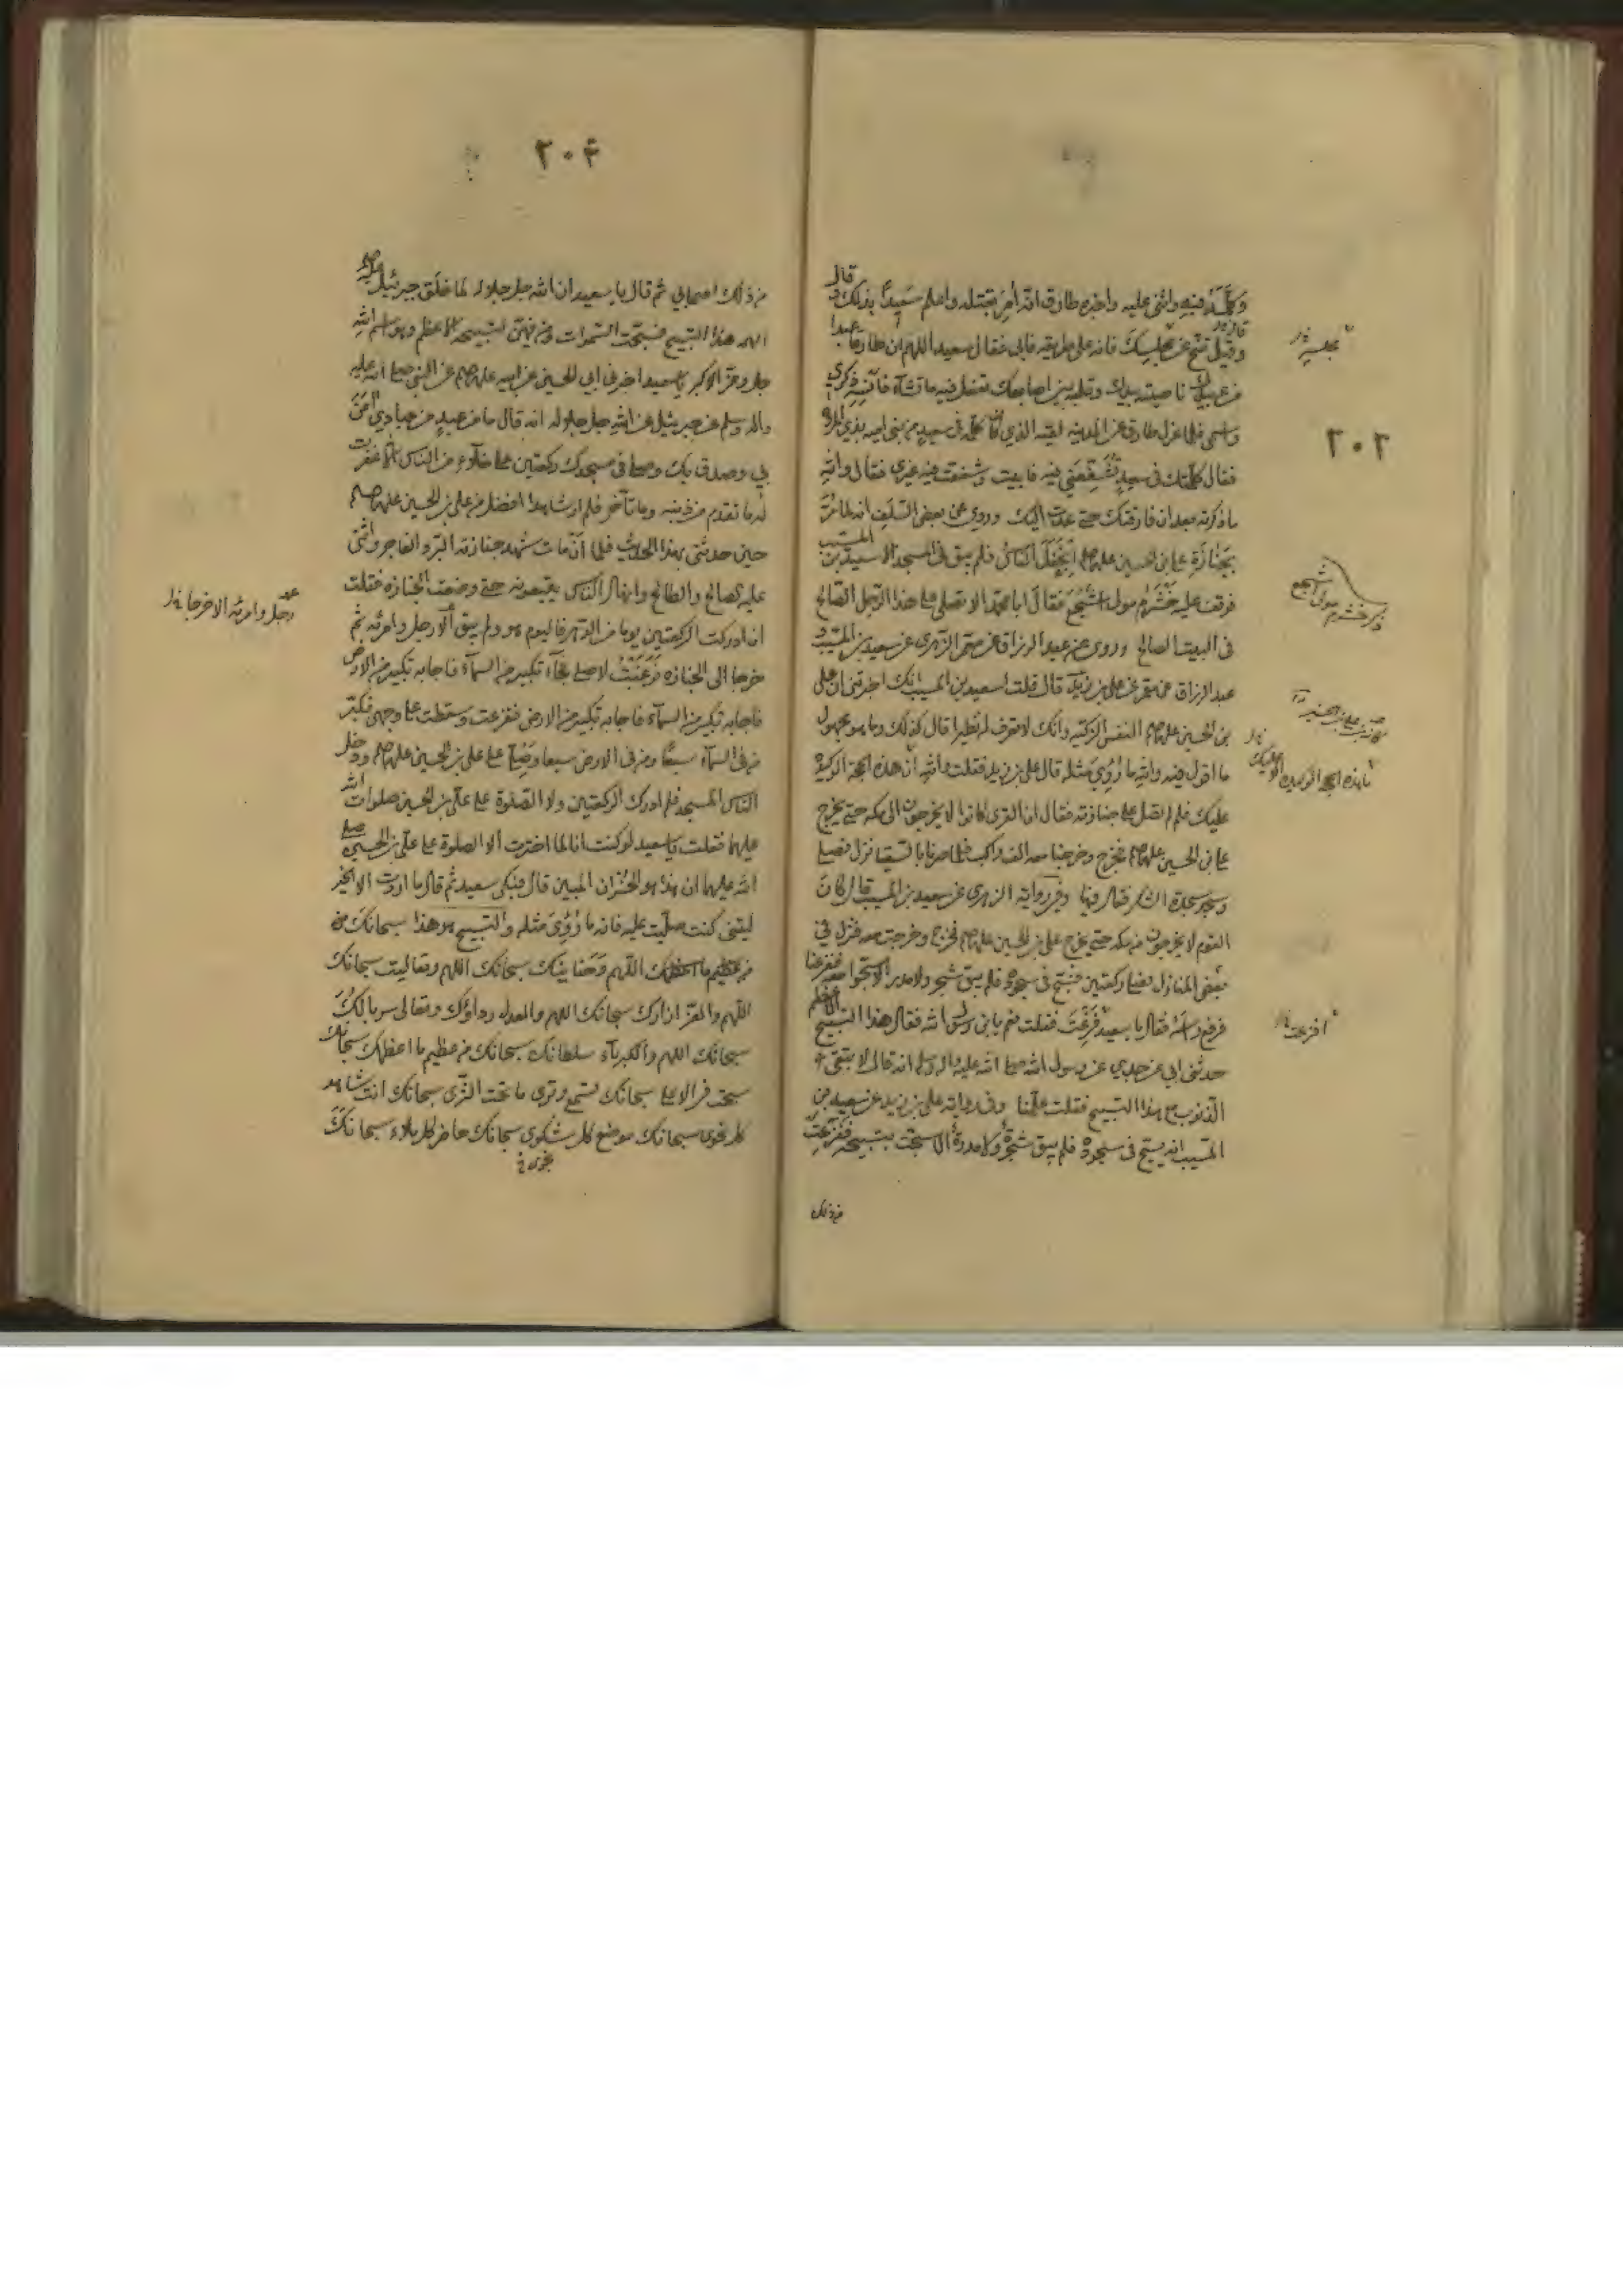 وكلمه فيه واثنى عليه واخبره طارق انه أمر بقتله واعلم سعيدا بذلك قال
وقيل تنح عن مجلسك فانه على طريقه فابى فقال سعيد اللهم ان طارقا عبدا
من عبيدك ناصيته بيدك وقلبه بين اصابعك تفعل فيه ما تشاء فانسه ذكري
واسمي فلما عزل طارق عن المدينة لقيه الذي كان كلمه في سعيد من بني اميه بذي المروة
فقال كلمتك في سعيد لتشفعني فيه فابيت وشفعت فيه غيري فقال والله
ما ذكرته بعد ان فارقتك حتى عدت اليك وروي عن بعض السلف انه لما مر
بجنازة علي بن الحسين عليهم انجفل الناس فلم يبق في المسجد الا سعيد بن المسيب
فوقف عليه خشرم مولى اشجع فقال ابا محمد الا تصلي على هذا الرجل الصالح
في البيت الصالح وروي عن عبد الرزاق عن معمر الزهري عن سعيد بن المسيب و
عبد الرزاق عن معمر عن علي بن زيد قال قلت لسعيد بن المسيب انك اخبرتني ان علي
بن الحسين عليهم النفس الزكيه وانك لا تعرف له نظيرا قال كذلك وما هو مجهول
ما اقول فيه والله ما رؤي مثله قال علي بن زيد فقلت والله ان هذه الحجة الوكيدة
عليك فلم لم تصل على جنازته فقال ان القرى كانوا لا يخرجون الى مكه حتى يخرج
علي بن الحسين عليهم فخرج وخرجنا معه الف راكب فلما صرنا بالسقيا نزل فصلى
وسجد سجدة الشكر فقال فيها وفي رواية الزهري عن سعيد بن المسيب قال كان
القوم لا يخرجون من مكه حتى يخرج علي بن الحسين عليهم فخرج وخرجت معه فنزل في
بعض المنازل فصلى ركعتين فسبح في سجوده فلم يبق شجر ولا مدر الا سبحوا معه ففزعنا
فرفع راسه فقال يا سعيد فزعت فقلت نعم يا بن رسول الله فقال هذا التسبيح الاعظم
حدثني ابي عن جدي عن رسول الله صلى الله عليه واله وسلم انه قال لا يبقى
الذنوب مع هذا التسبيح فقلت علمنا وفي رواية علي بن زيد عن سعيد بن
المسيب انه سبح في سجوده فلم يبق شجرة ولا مدرة الا سبحت بتسبيحه ففزعت
من ذلك
مجلسيه
٢٠٣
ذكر خشرم مولى اشجع
افزعت
٢٠٤
من ذلك اصحابي ثم قال يا سعيد ان الله جل جلاله لما خلق جبرئيل عليه
الهمه هذا التسبيح فسبحت السموات ومن فيهن لتسبيحه الاعظم وهو اسم الله
جل وعز الاكبر يا سعيد اخبرني ابي الحسين عن ابيه عليهم عن النبي صلى الله عليه
واله وسلم عن جبرئيل عن الله جل جلاله انه قال ما من عبد من عبادي آمن
بي وصدق بك وصلى في مسجدك ركعتين على خلاء من الناس الا غفرت
له ما تقدم من ذنبه وما تأخر فلم ار شاهدا افضل من علي بن الحسين عليهم
حين حدثني بهذا الحديث فلما أن مات شهد جنازته البر والفاجر واثنى
عليه الصالح والطالح وانهال الناس يتبعونه حتى وضعت الجنازه فقلت
ان ادركت الركعتين يوما من الدهر فاليوم هو ولم يبق الا رجل وامرئه ثم
خرجا الى الجنازه ووثبت لاصلي فجاء تكبير من السماء فاجابه تكبير من الارض
فاجابه تكبير من السماء فاجابه تكبير من الارض ففزعت وسقطت على وجهي فكبر
من في السماء سبعا ومن في الارض سبعا وصلي على علي بن الحسين عليهم ودخل
الناس المسجد فلم ادرك الركعتين ولا الصلوة على علي بن الحسين صلوات الله
عليهما فقلت يا سعيد لو كنت انا لما اخترت الا الصلوة على علي بن الحسين صلى
الله عليهما ان هذا هو الخسران المبين قال فبكى سعيد ثم قال ما اردت الا الخير
ليتني كنت صليت عليه فانه ما رؤى مثله والتسبيح هو هذا سبحانك
اللهم وحنانيك سبحانك اللهم وتعاليت سبحانك
اللهم والعز ازارك سبحانك اللهم والعظمة رداؤك وتعالى سربالك
سبحانك اللهم والكبرياء سلطانك سبحانك من عظيم ما اعظمك سبحانك
سبحت في الاعلى سبحانك تسمع وترى ما تحت الثرى سبحانك انت شاهد
كل نجوى سبحانك موضع كل شكوى سبحانك حاضر كل ملاء سبحانك
رجل وامرئه الاخرجا